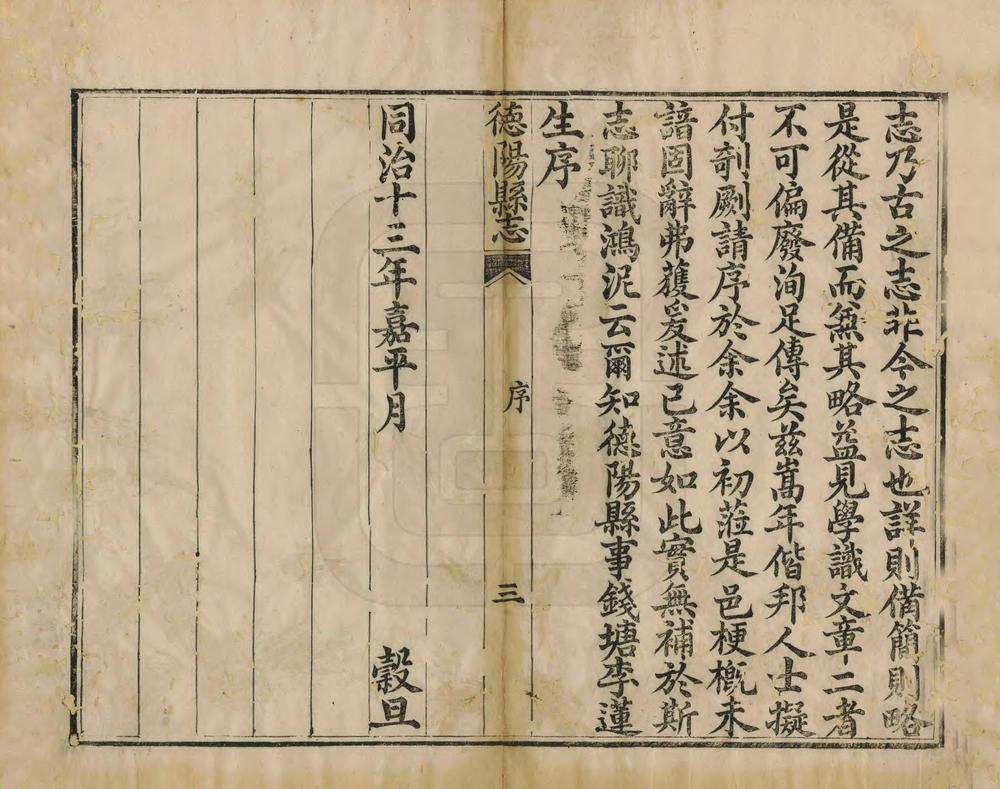 志乃古之志非今之志也詳則備簡則略
是從其備而無其略益見學識文章二者
不可偏廢洵足傳矣茲嵩年偕邦人士擬
付剞劂請序於余余以初蒞是邑梗槪未
諳固辭弗獲爰述己意如此實無補於斯
志聊識鴻泥云爾知德陽縣事錢塘李蓮
生序
德陽縣志 序 三
同治十三年嘉平月 穀旦